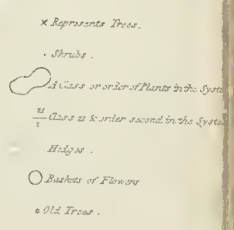 × Represents Trees.
· Shrubs.
A Class or order of Plants in the Syste
21/2 Class 21 & order second in the Syste
Hedges.
Baskets of Flowers
Old Trees.